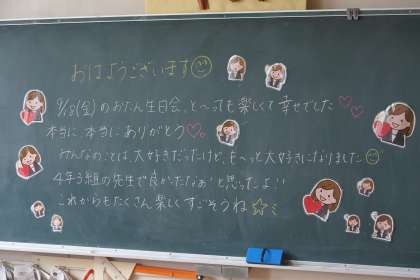 おはようございます
9/13(金)のおたん生日会、と〜っても楽しくて幸せでした
本当に、本当に ありがとう
みんなのことは大好きだったけど、も〜っと大好きになりました
4年3組の先生で良かったなぁ と思ったよ!!
これからもたくさん楽しくすごそうね